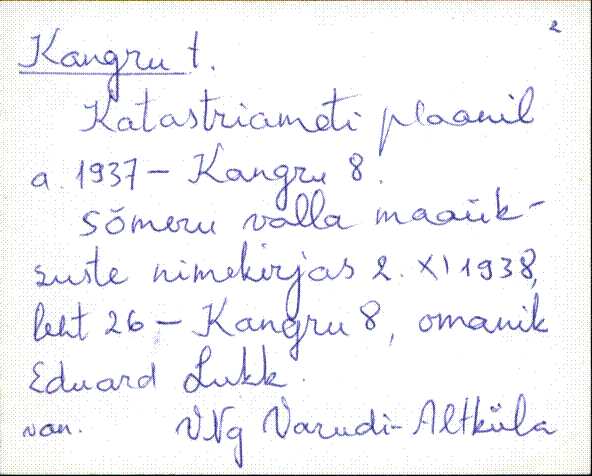 2
Kangru t.
Katastriameti plaanil
a. 1937 – Kangru 8.
Sõmeru valla maaük-
suste nimekirjas 2. XI 1938,
leht 26 – Kangru 8, omanik
Eduard Lukk.
van. VNg Varudi-Altküla